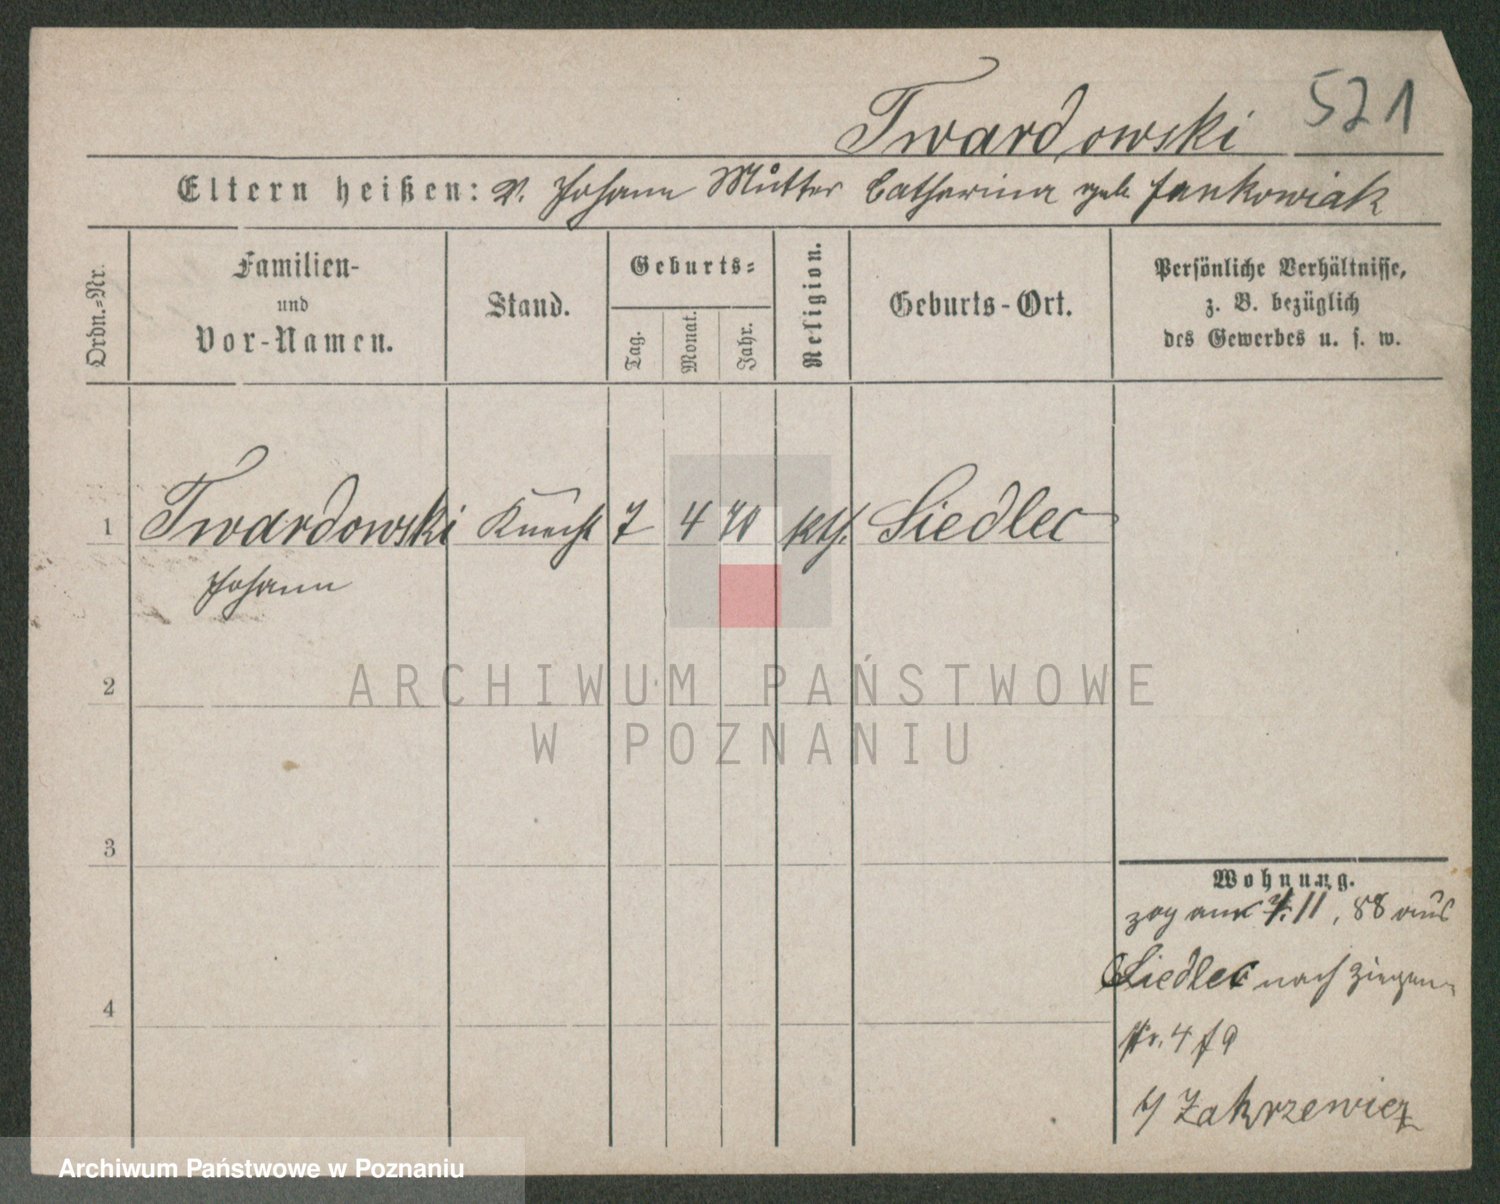 Twardowski 521
Eltern heißen: V. Johann Mutter Catharina geb. Jankowiak
Ordn.-Nr.
Familien-
und
Vor-Namen.
Stand.
Geburts-
Tag. Monat. Jahr.
Religion.
Geburts-Ort.
Persönliche Verhältnisse,
z. B. bezüglich
des Gewerbes u. s. w.
1 Twardowski Knecht 7 4 70 kth. Siedlec
Johann
2
3
4
Wohnung.
zog am 11, 88 aus
Siedlec nach Ziegen-
str. 4
Zakrzewicz
ARCHIWUM PAŃSTWOWE
W POZNANIU
Archiwum Państwowe w Poznaniu